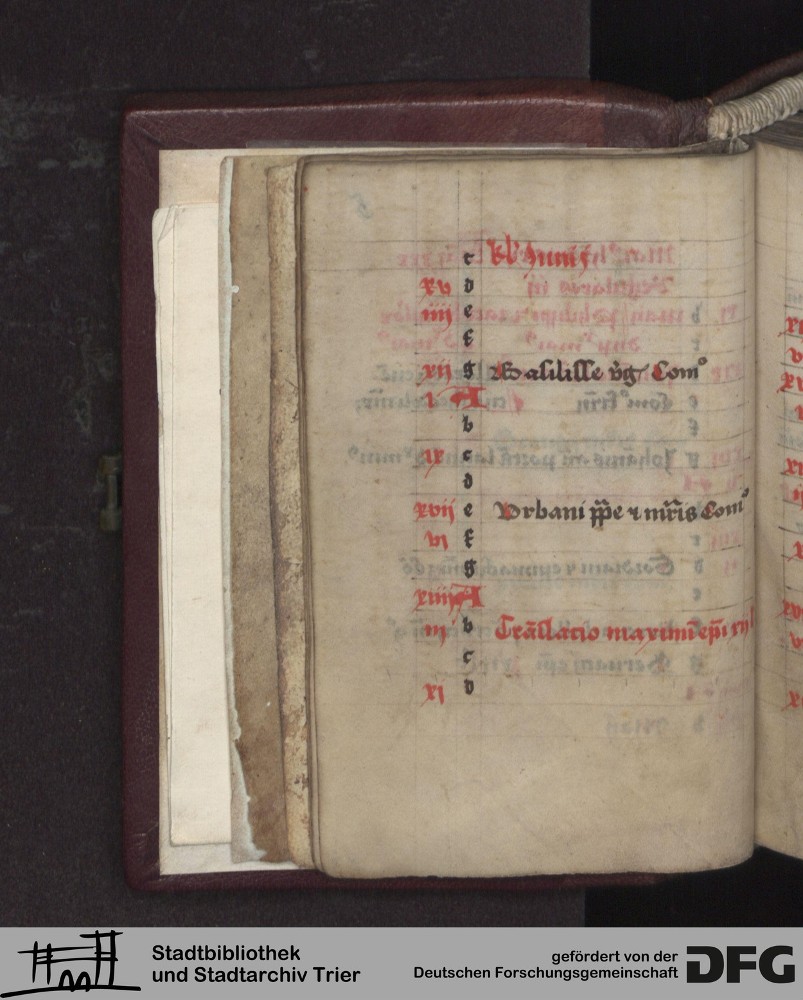 c kl' Junij
xv d
iiij e
f
xij g Basilisse v̄g Com⁰
i A
b
ix c
d
xvij e Vrbani p̄pe ⁊ mr̄is Com⁰
vi f
g
xiiij A
iij b Trāslatio maximi ep̄i
c
xi d
Stadtbibliothek
und Stadtarchiv Trier
gefördert von der
Deutschen Forschungsgemeinschaft
DFG